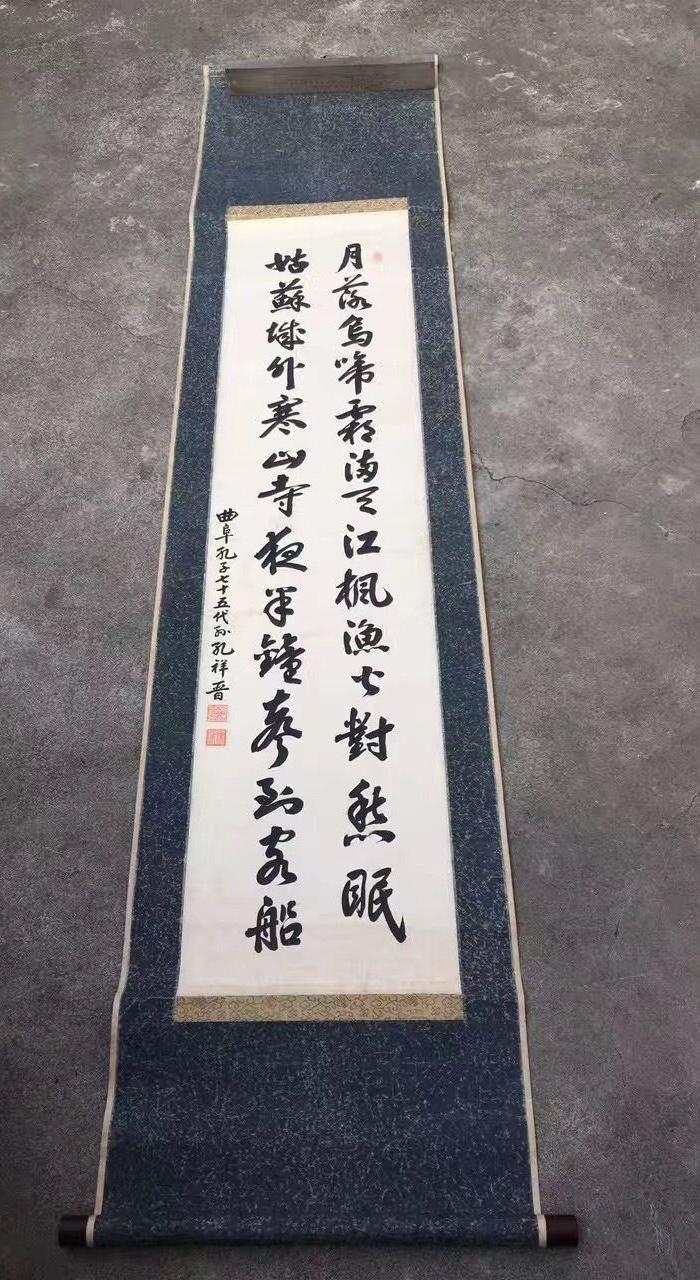 月落烏啼霜满天江楓漁火對愁眠
姑蘇城外寒山寺夜半鐘聲到客船
曲阜孔子七十五代孙孔祥晋